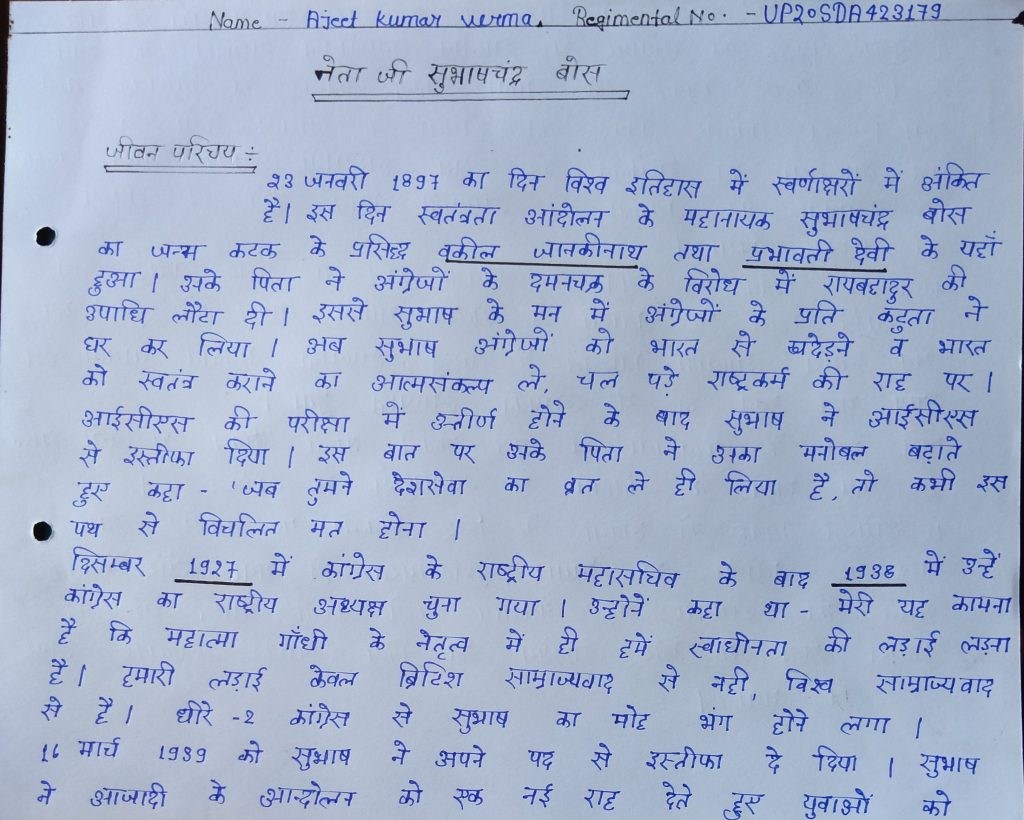 Name - Ajeet Kumar verma. Regimental No. - UP20SDA423179
नेता जी सुभाषचंद्र बोस
जीवन परिचय :-
23 जनवरी 1897 का दिन विश्व इतिहास में स्वर्णाक्षरों में अंकित
है। इस दिन स्वतंत्रता आंदोलन के महानायक सुभाषचंद्र बोस
का जन्म कटक के प्रसिद्ध वकील जानकीनाथ तथा प्रभावती देवी के यहाँ
हुआ। उनके पिता ने अंग्रेजों के दमनचक्र के विरोध में रायबहादुर की
उपाधि लौटा दी। इससे सुभाष के मन में अंग्रेजों के प्रति कटुता ने
घर कर लिया। अब सुभाष अंग्रेजों को भारत से खदेड़ने व भारत
को स्वतंत्र कराने का आत्मसंकल्प ले, चल पड़े राष्ट्रकर्म की राह पर।
आईसीएस की परीक्षा में उत्तीर्ण होने के बाद सुभाष ने आईसीएस
से इस्तीफा दिया। इस बात पर उनके पिता ने उनका मनोबल बढ़ाते
हुए कहा - 'जब तुमने देशसेवा का व्रत ले ही लिया है, तो कभी इस
पथ से विचलित मत होना।
दिसम्बर 1927 में कांग्रेस के राष्ट्रीय महासचिव के बाद 1938 में उन्हें
कांग्रेस का राष्ट्रीय अध्यक्ष चुना गया। उन्होनें कहा था - मेरी यह कामना
है कि महात्मा गाँधी के नेतृत्व में ही हमें स्वाधीनता की लड़ाई लड़ना
है। हमारी लड़ाई केवल ब्रिटिश साम्राज्यवाद से नही, विश्व साम्राज्यवाद
से है। धीरे -2 कांग्रेस से सुभाष का मोह भंग होने लगा।
16 मार्च 1939 को सुभाष ने अपने पद से इस्तीफा दे दिया। सुभाष
ने आजादी के आन्दोलन को एक नई राह देते हुए युवाओं को